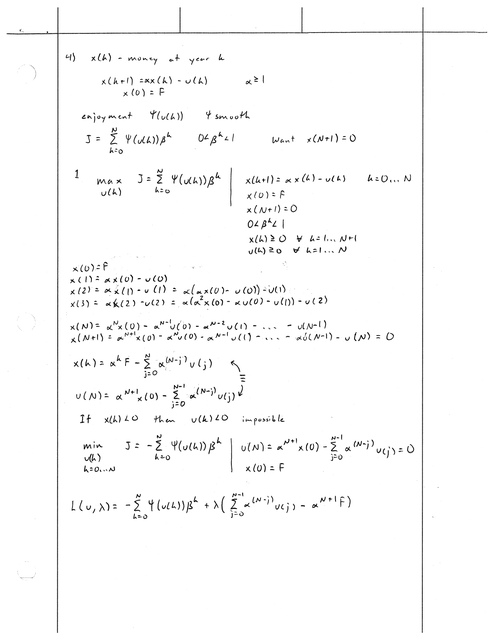 4) x(k) - money at year k
x(k+1) = αx(k) - u(k) α ≥ 1
x(0) = F
enjoyment Ψ(u(k)) Ψ smooth
J = Σ_{k=0}^{N} Ψ(u(k))β^k 0<β^k<1 Want x(N+1) = 0
1 max_{u(k)} J = Σ_{k=0}^{N} Ψ(u(k))β^k | x(k+1) = αx(k) - u(k) k=0...N
x(0) = F
x(N+1) = 0
0<β^k<1
x(k) ≥ 0 ∀ k=1...N+1
u(k) ≥ 0 ∀ k=1...N
x(0) = F
x(1) = αx(0) - u(0)
x(2) = αx(1) - u(1) = α(αx(0) - u(0)) - u(1)
x(3) = αx(2) - u(2) = α(α²x(0) - αu(0) - u(1)) - u(2)
x(N) = α^N x(0) - α^{N-1} u(0) - α^{N-2} u(1) - .... - u(N-1)
x(N+1) = α^{N+1} x(0) - α^N u(0) - α^{N-1} u(1) - .... - αu(N-1) - u(N) = 0
x(k) = α^k F - Σ_{j=0}^{N} α^{(N-j)} u(j)
≡
u(N) = α^{N+1} x(0) - Σ_{j=0}^{N-1} α^{(N-j)} u(j)
If x(k)<0 then u(k)<0 impossible
min_{u(k) k=0...N} J = -Σ_{k=0}^{N} Ψ(u(k))β^k | u(N) = α^{N+1} x(0) - Σ_{j=0}^{N-1} α^{(N-j)} u(j) = 0
x(0) = F
L(u,λ) = -Σ_{k=0}^{N} Ψ(u(k))β^k + λ(Σ_{j=0}^{N-1} α^{(N-j)} u(j) - α^{N+1} F)